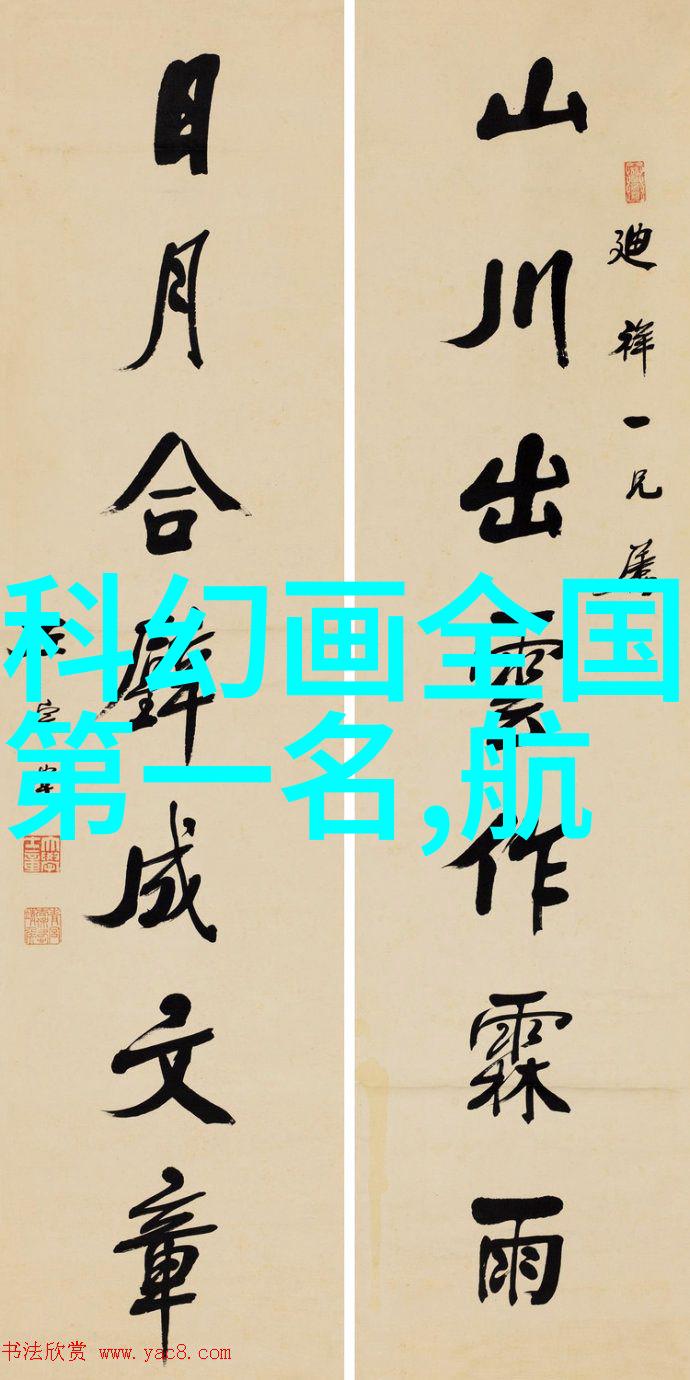 山川出雲作霖雨
廸祥一兄屬
日月合璧成文章
左宗棠
科幻画全国
第一名,航
书法欣赏 www.yac8.com